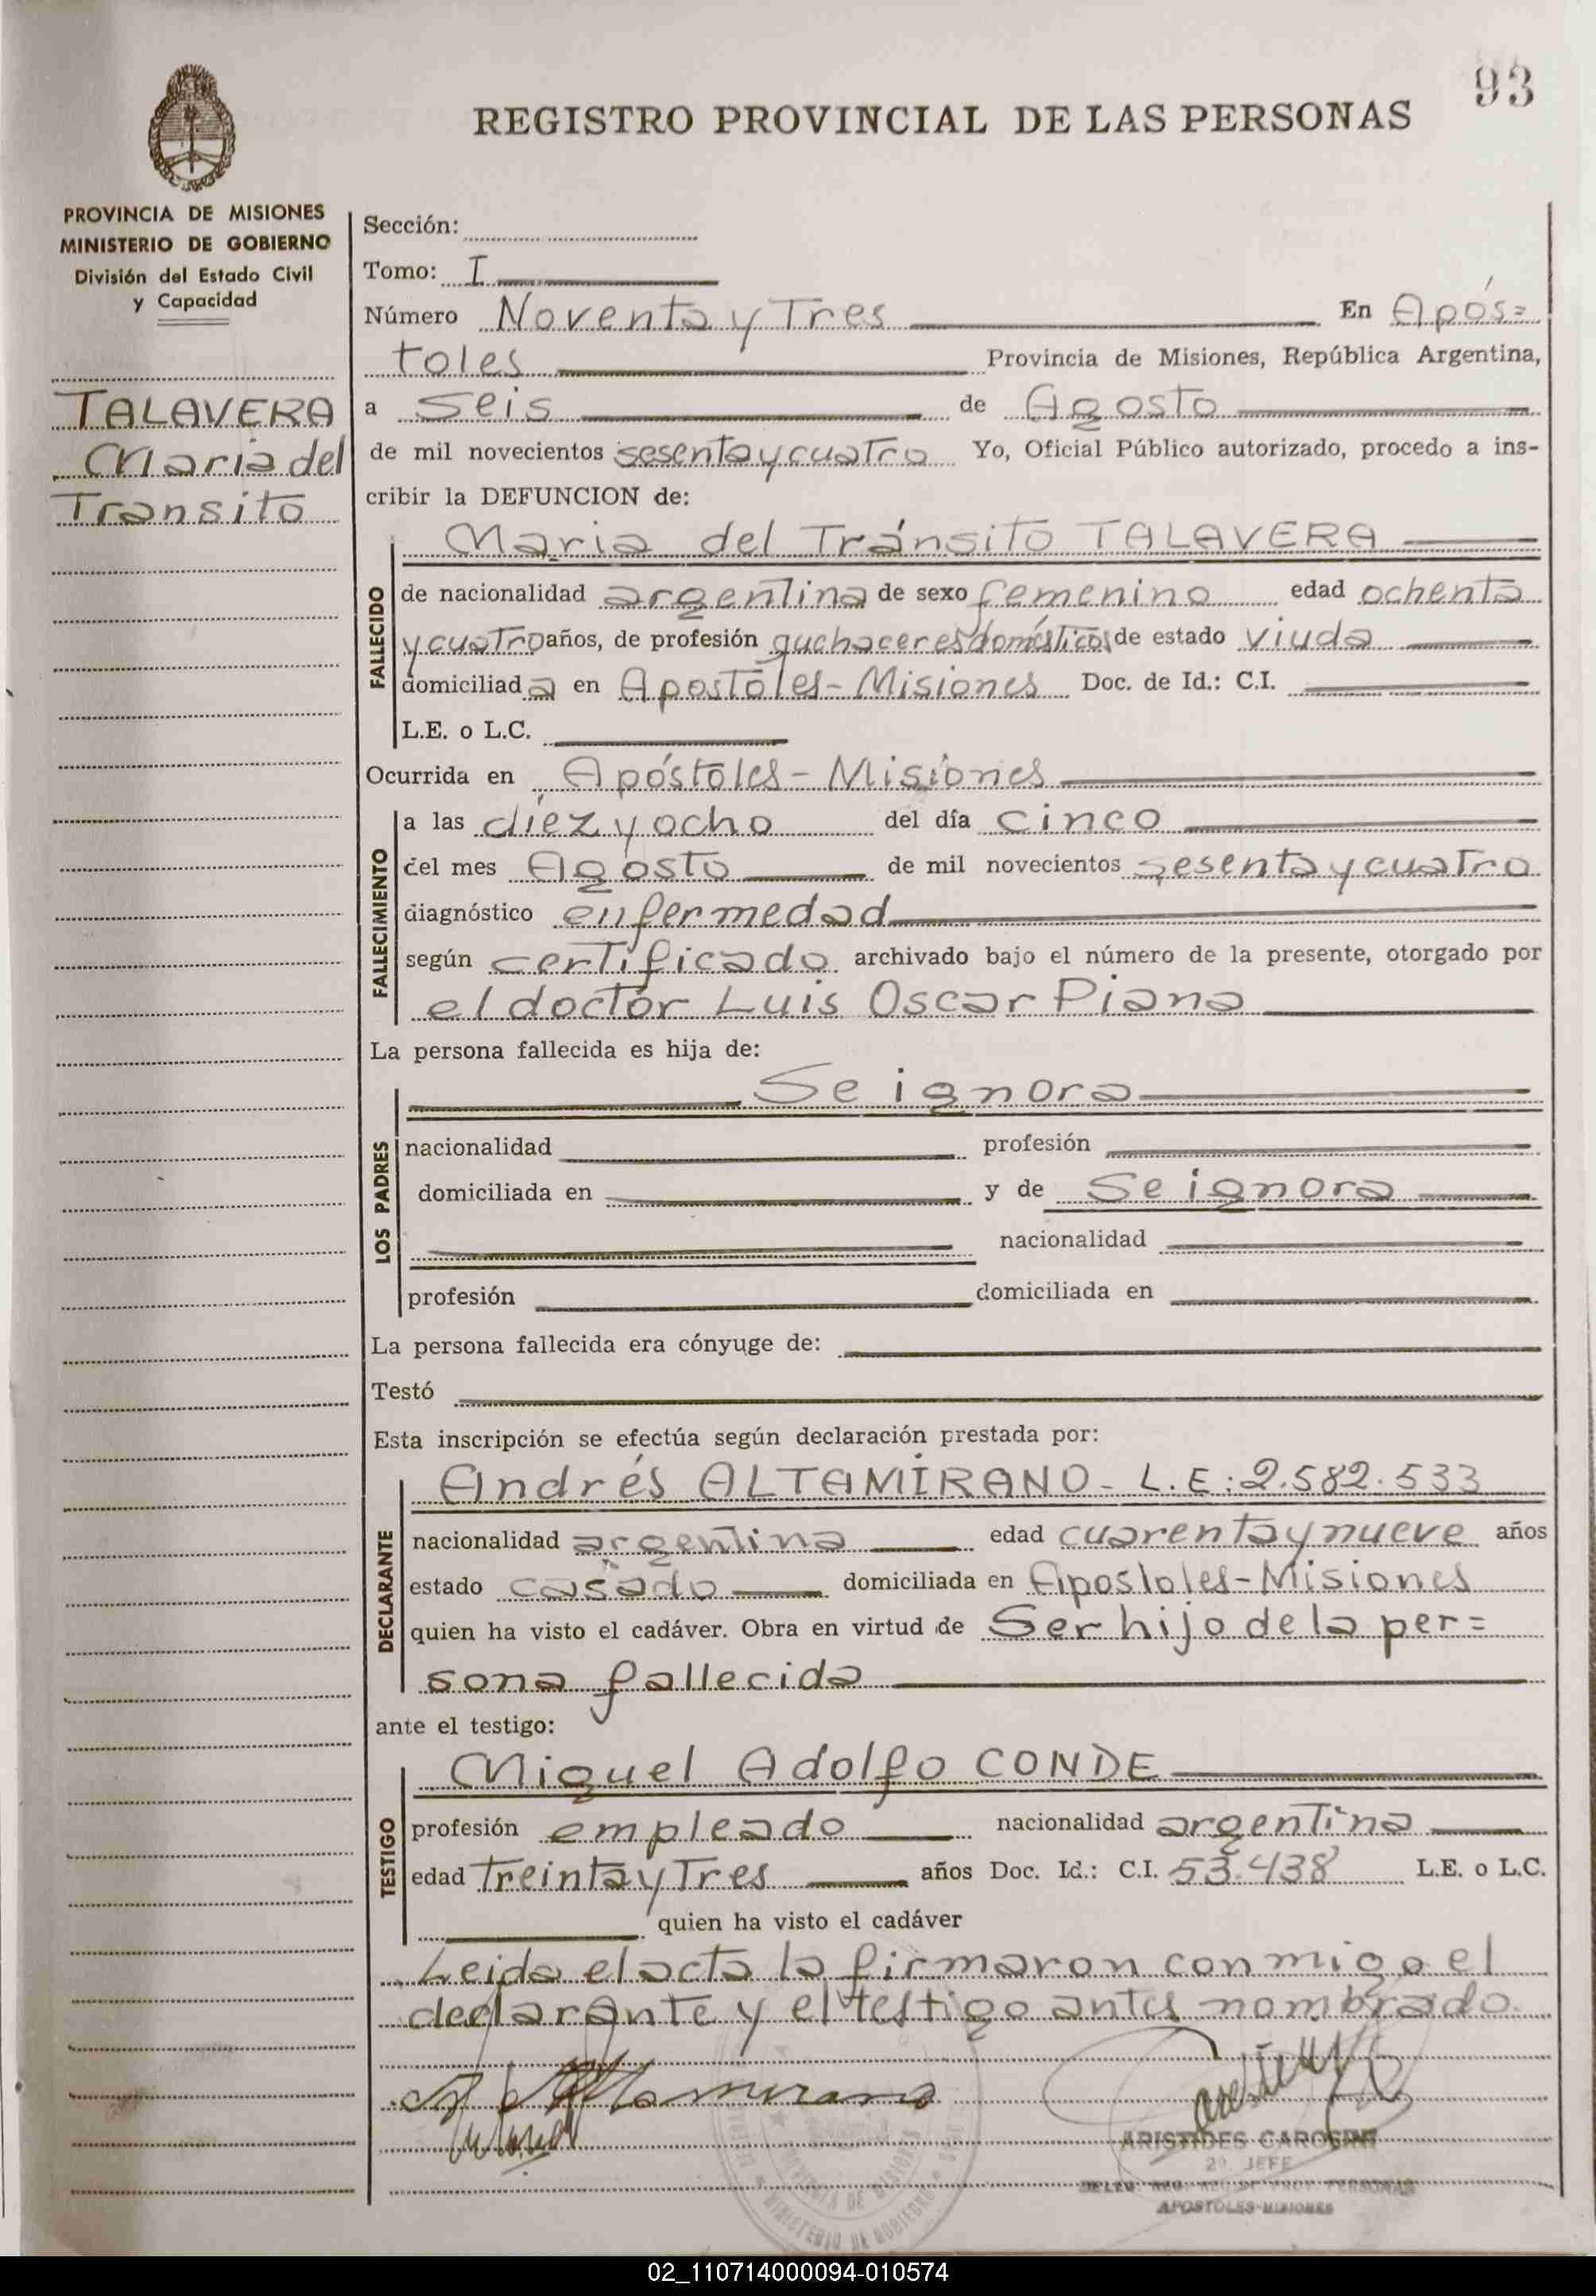 93
REGISTRO PROVINCIAL DE LAS PERSONAS
PROVINCIA DE MISIONES
MINISTERIO DE GOBIERNO
División del Estado Civil
y Capacidad
TALAVERA
Maria del
Transito
Sección:
Tomo: I
Número Noventa y Tres En Após=
toles Provincia de Misiones, República Argentina,
a Seis de Agosto
de mil novecientos sesenta y cuatro Yo, Oficial Público autorizado, procedo a ins-
cribir la DEFUNCION de:
FALLECIDO
Maria del Tránsito TALAVERA
de nacionalidad argentina de sexo femenino edad ochenta
y cuatro años, de profesión quehaceres domésticos de estado viuda
domiciliad a en Apostoles - Misiones Doc. de Id.: C.I.
L.E. o L.C.
Ocurrida en Apóstoles - Misiones
FALLECIMIENTO
a las diez y ocho del día cinco
del mes Agosto de mil novecientos sesenta y cuatro
diagnóstico enfermedad
según certificado archivado bajo el número de la presente, otorgado por
el doctor Luis Oscar Piana
La persona fallecida es hija de:
LOS PADRES
Se ignora
nacionalidad profesión
domiciliada en y de Se ignora
nacionalidad
profesión domiciliada en
La persona fallecida era cónyuge de:
Testó
Esta inscripción se efectúa según declaración prestada por:
DECLARANTE
Andrés ALTAMIRANO - L.E: 2.582.533
nacionalidad argentina edad cuarenta y nueve años
estado casado domiciliada en Apostoles - Misiones
quien ha visto el cadáver. Obra en virtud de Ser hijo de la per=
sona fallecida
ante el testigo:
TESTIGO
Miguel Adolfo CONDE
profesión empleado nacionalidad argentina
edad treinta y Tres años Doc. Id.: C.I. 53.438 L.E. o L.C.
quien ha visto el cadáver
Leida el acta la firmaron conmigo el
declarante y el testigo antes nombrado.
ARISTIDES
2º. JEFE
APOSTOLES-MISIONES
MINISTERIO DE GOBIERNO
02_110714000094-010574